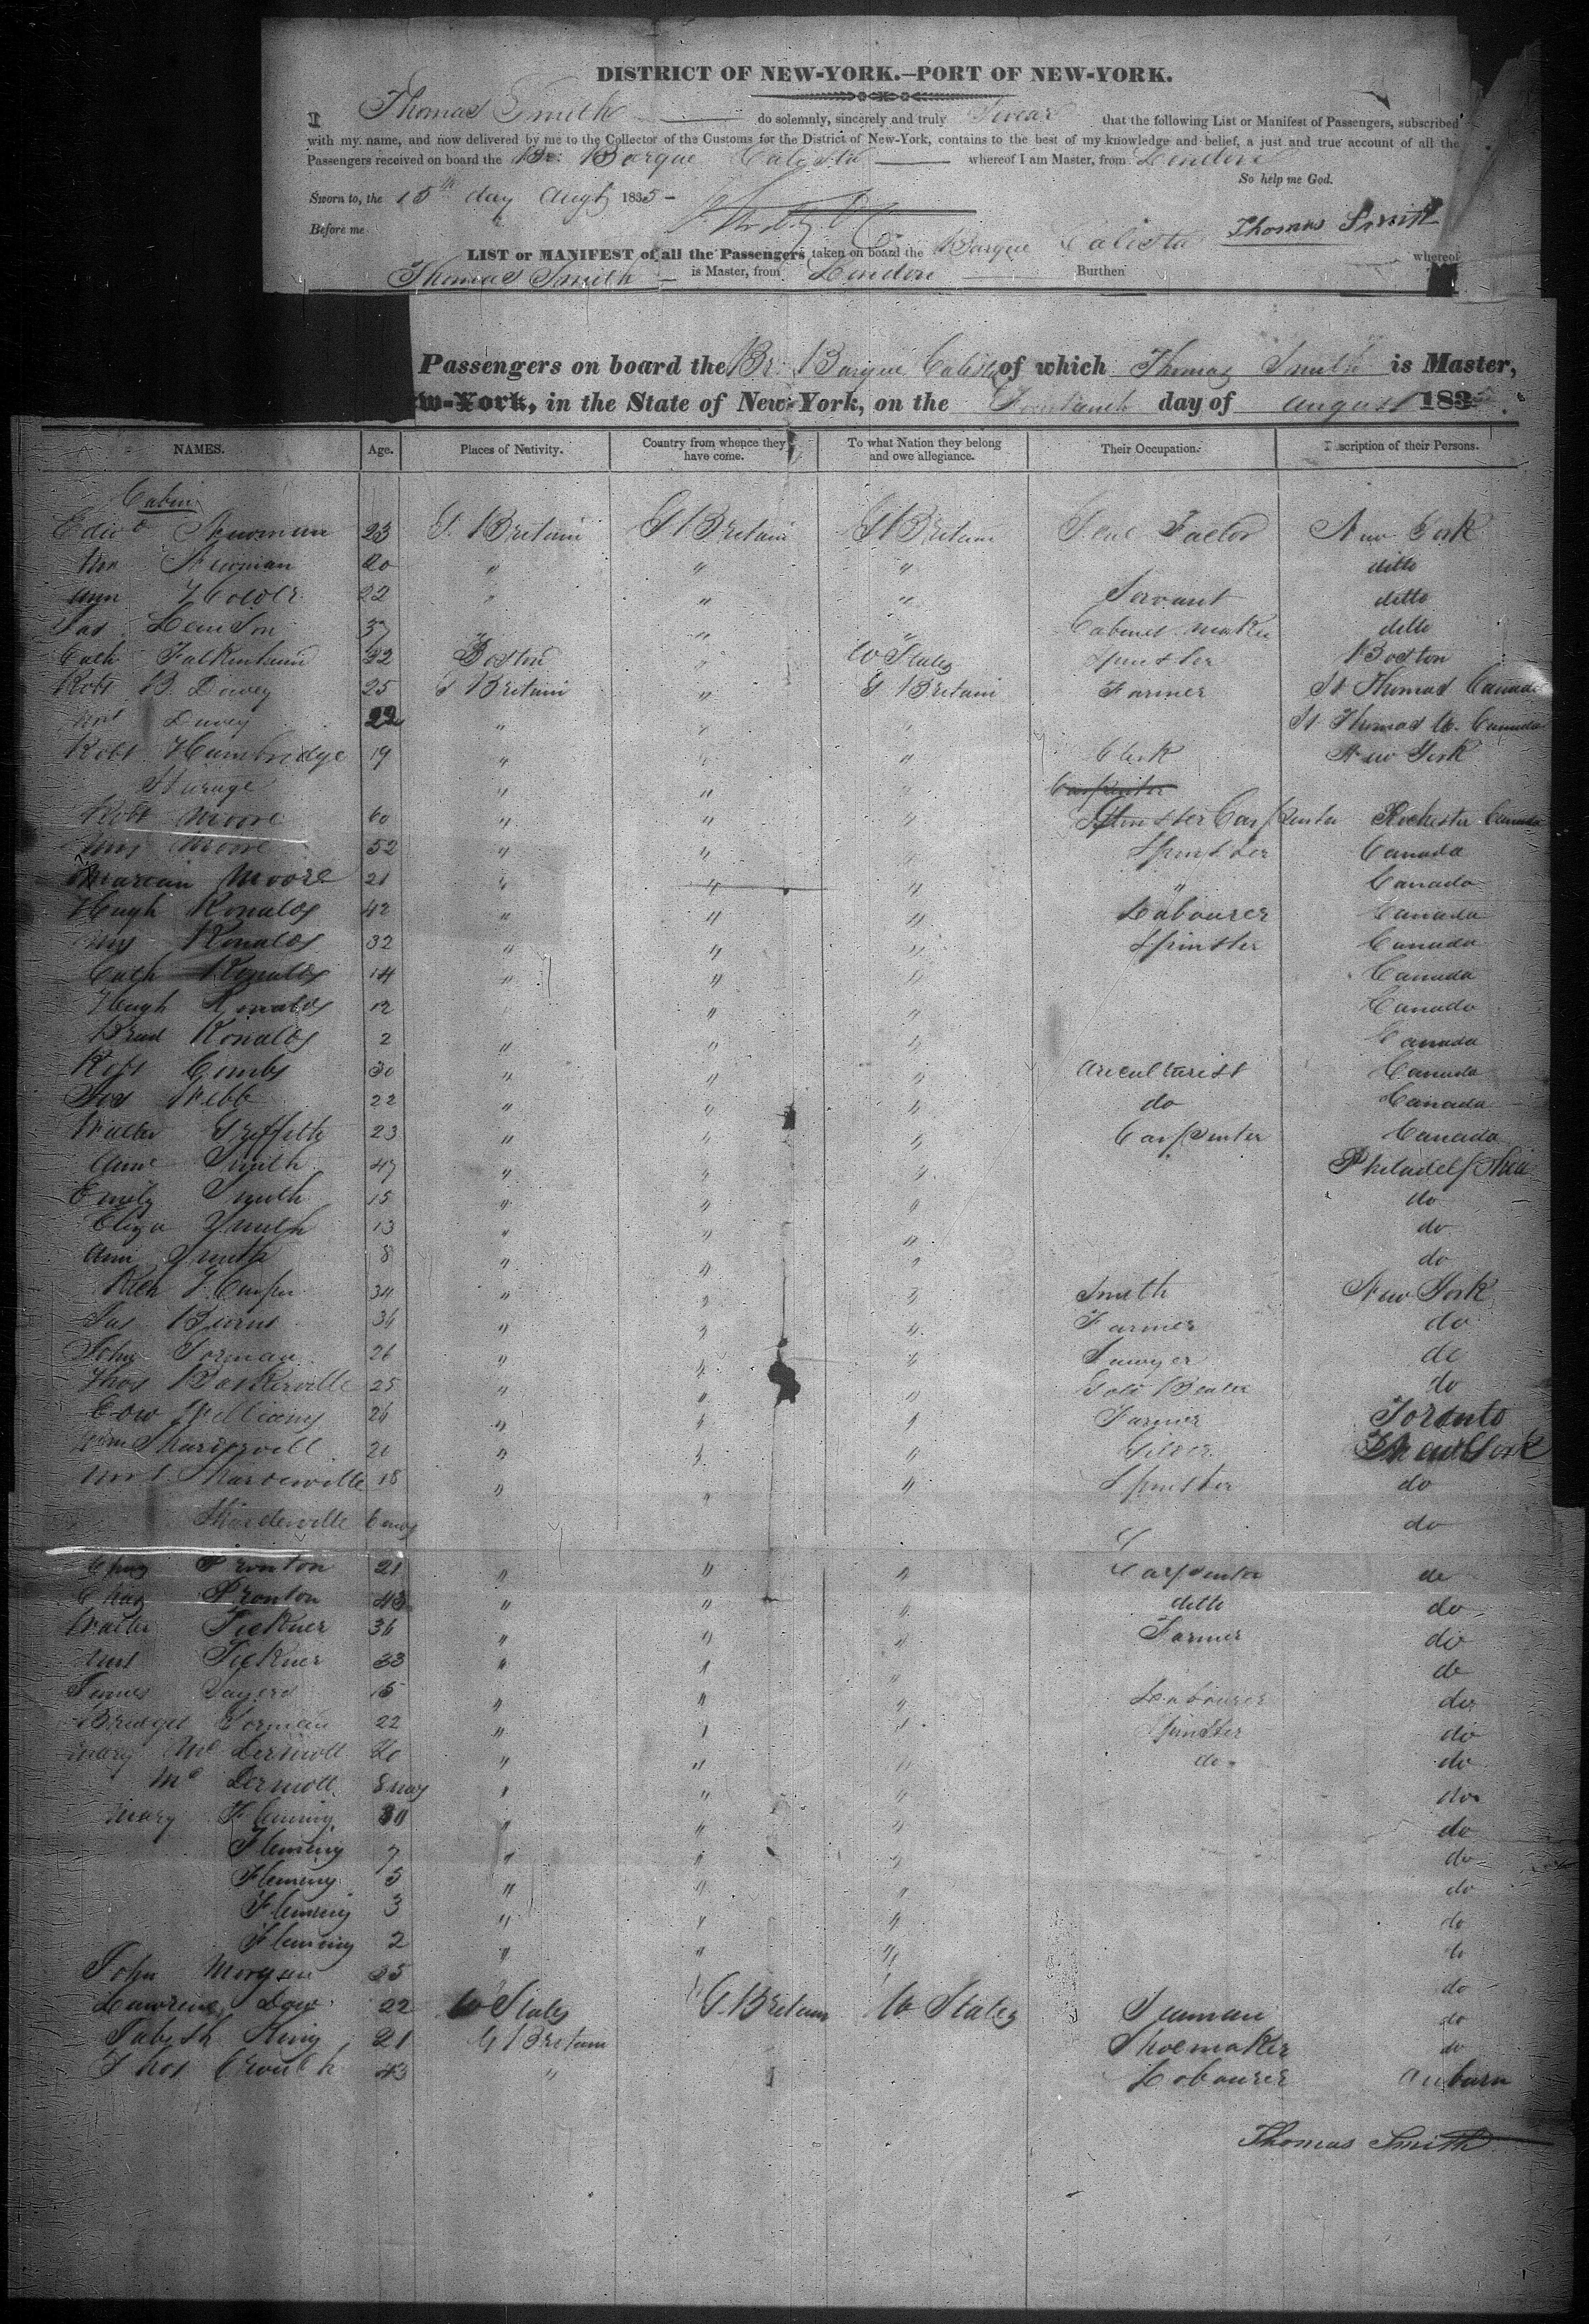 DISTRICT OF NEW-YORK.—PORT OF NEW-YORK.
I Thomas Smith do solemnly, sincerely and truly Swear that the following List or Manifest of Passengers, subscribed
with my name, and now delivered by me to the Collector of the Customs for the District of New-York, contains to the best of my knowledge and belief, a just and true account of all the
Passengers received on board the Br: Barque Calista whereof I am Master, from London
So help me God.
Sworn to, the 15th day Augt 1835 -
Before me
Thomas Smith
LIST or MANIFEST of all the Passengers taken on board the Barque Calista whereof
Thomas Smith is Master, from London Burthen
Passengers on board the Br: Barque Calista of which Thomas Smith is Master,
w-York, in the State of New-York, on the day of August 183
NAMES. Age. Places of Nativity. Country from whence they have come. To what Nation they belong and owe allegiance. Their Occupation. scription of their Persons.
Cabin
Edwd Newman 23 G. Britain G Britain G Britain Factor New York
Newman 20 " " " ditto
Ann 22 " " " Servant ditto
Jas 37 " " " Cabinet maker ditto
Cath 32 Boston " U States Spinster Boston
Robt B. Dewey 25 G Britain " G Britain Farmer St Thomas Canada
Mrs Dewey 22 " " " St Thomas U. Canada
Robt Hambridge 19 " " " Clerk New York
Sturage " " " Carpenter
Robt Moore 60 " " " Spinster Carpenter Rochester Canada
Mrs Moore 52 " " " Spinster Canada
Marian Moore 21 " " " " Canada
Hugh Ronalds 42 " " " Labourer Canada
Mrs Ronalds 32 " " " Spinster Canada
Cath Ronalds 14 " " " Canada
Hugh Ronalds 12 " " " Canada
Ronalds 2 " " " Canada
Robt Combs 30 " " " Ariculturist Canada
Webb 22 " " " do Canada
Walter Griffith 23 " " " Carpenter Canada
Anne Smith 47 " " " Philadelphia
Emily Smith 15 " " " do
Eliza Smith 13 " " " do
Ann Smith 8 " " " do
Rich 34 " " " Smith New York
Jas 36 " " " Farmer do
John Gorman 26 " " " Sawyer do
Thos Baskerville 25 " " " Gold Beater do
Edw Williams 26 " " " Farmer Toronto
Wm 20 " " " New York
Mrs 18 " " " Spinster do
6 mos do
Chas Pronton 21 " " " Carpenter do
Chas Pronton 43 " " " ditto do
Walter Tickner 36 " " " Farmer do
Mrs Tickner 33 " " " do
James Sayers 15 " " " Labourer do
Bridget Gorman 22 " " " Spinster do
Mary Mc Dermott 20 " " " do do
Mc Dermott 8 mos " " " do
Mary Fleming 30 " " " do
Fleming 7 " " " do
Fleming 5 " " " do
Fleming 3 " " " do
Fleming 2 " " " do
John Morgan 25 do
Lawrence Dow 22 U States G. Britain U States Seaman do
King 21 G Britain Shoemaker do
Thos Crouch 43 " " Labourer Auburn
Thomas Smith